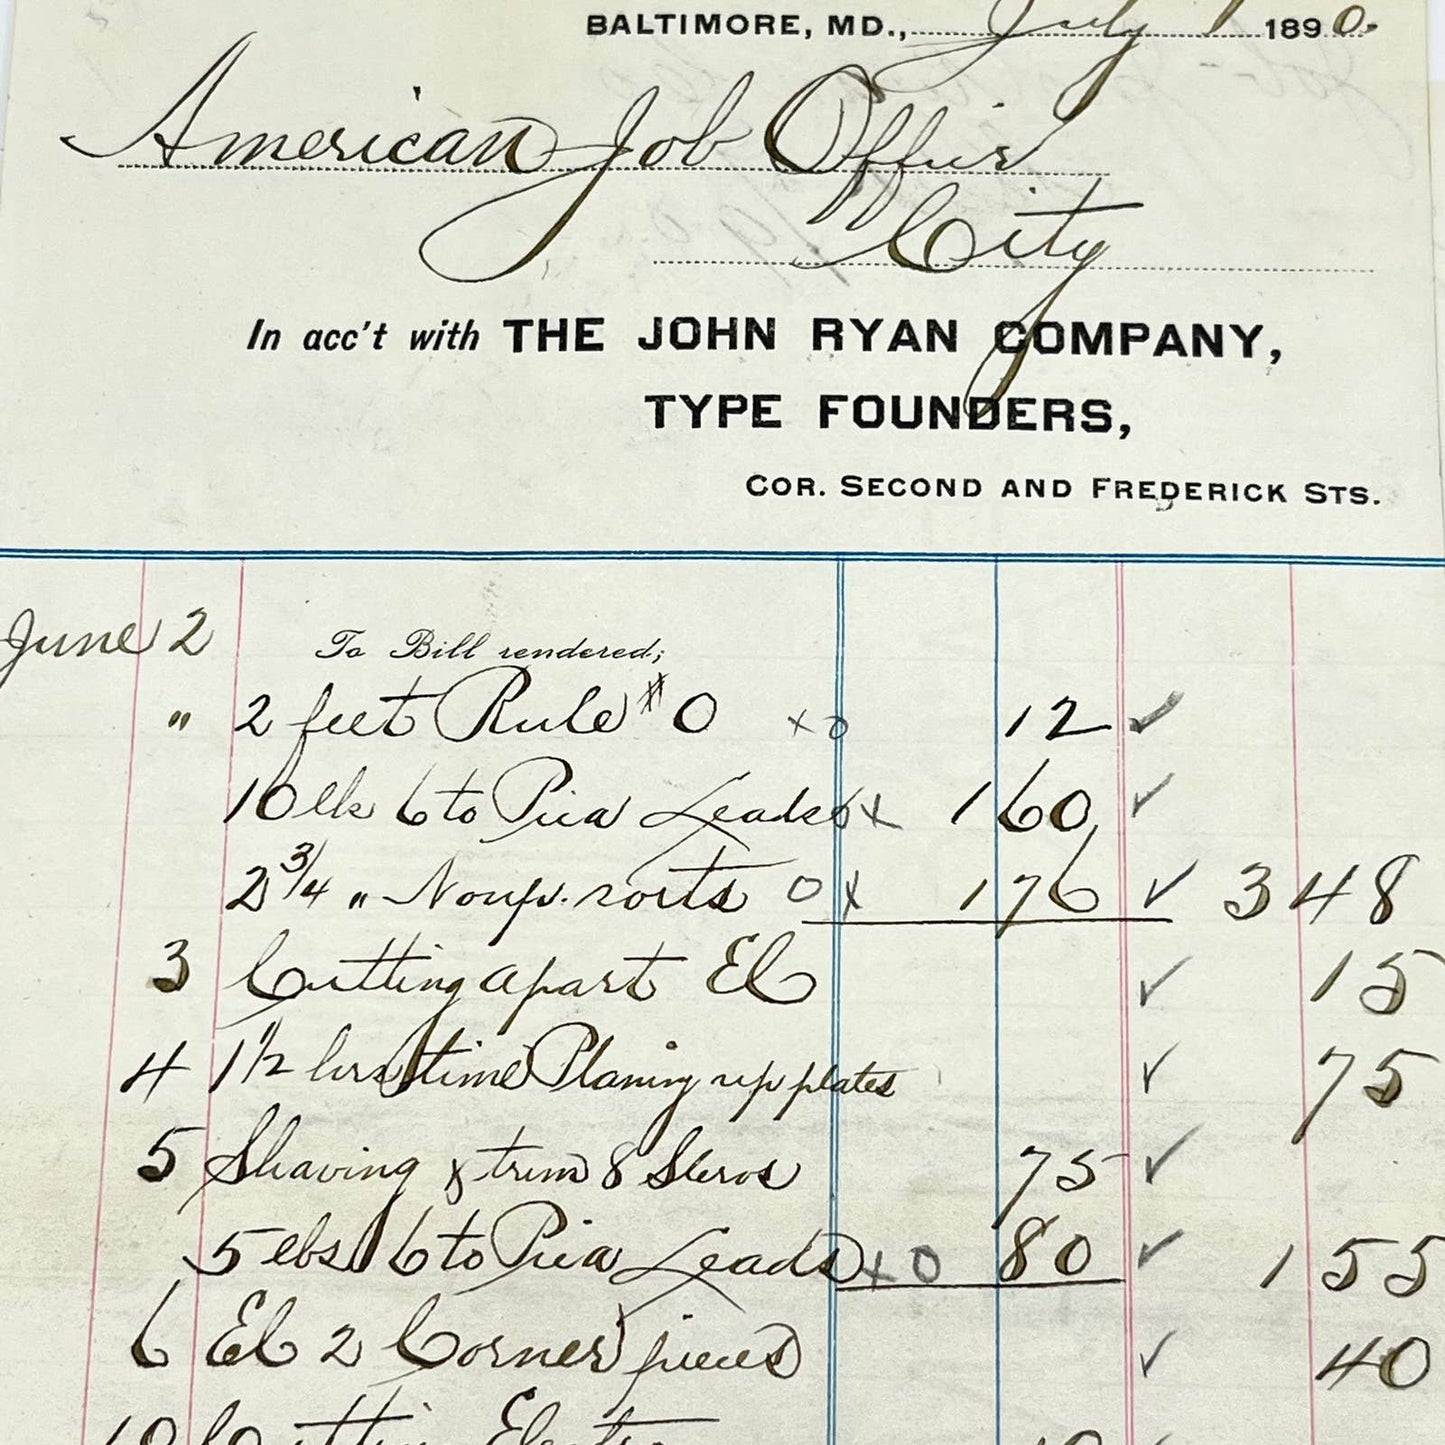 BALTIMORE, MD., July 1 1890.
American Job Office
City
In acc't with THE JOHN RYAN COMPANY,
TYPE FOUNDERS,
COR. SECOND AND FREDERICK STS.
June 2 To Bill rendered;
" 2 feet Rule # 0 x o 12 ✓
10 lbs 6 to Pica Leads x 160 ✓
2 3/4 " Nonp. sorts o x 176 ✓ 3 48
3 Cutting apart El ✓ 15
4 1 1/2 hrs time Planing up plates ✓ 75
5 Shaving & trim 8 Steros 75 ✓
5 lbs 6 to Pica Leads x o 80 ✓ 1 55
6 El 2 Corner pieces ✓ 40
10 Cutting Electro